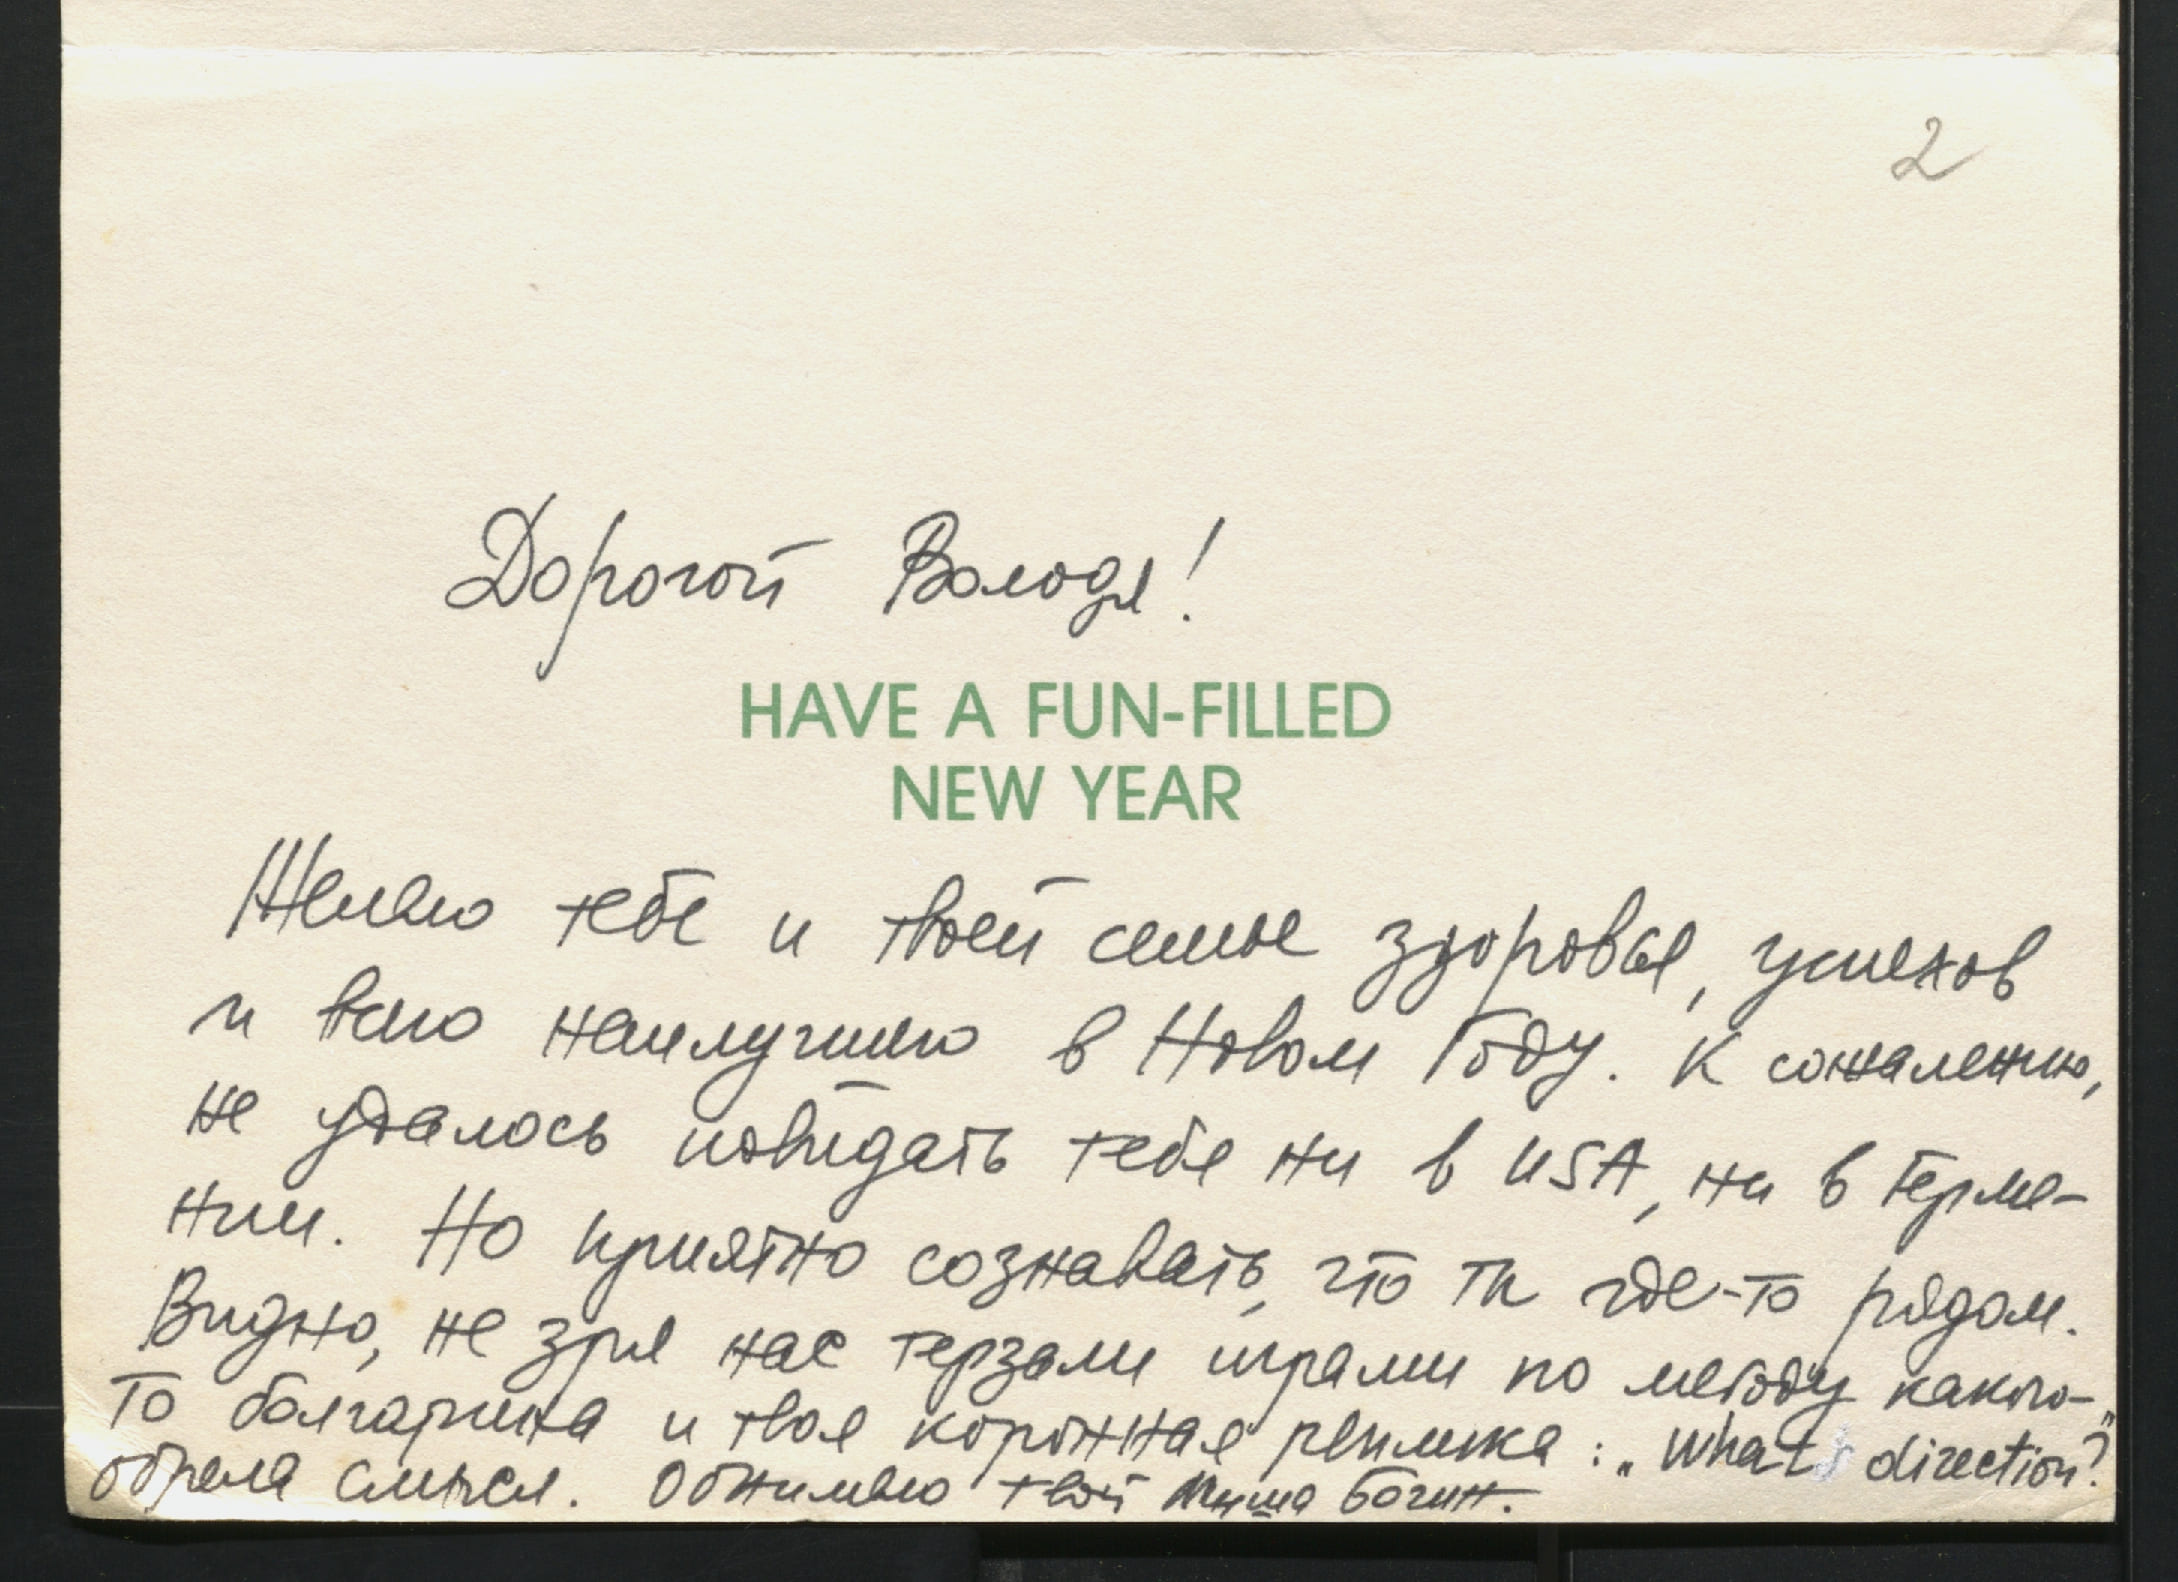 2
Дорогой Володя!
HAVE A FUN-FILLED
NEW YEAR
Желаю тебе и твоей семье здоровья, успехов
и всего наилучшего в Новом Году. К сожалению,
не удалось повидать тебя ни в USA, ни в Герма-
нии. Но приятно сознавать, что ты где-то рядом.
Видно, не зря нас терзали играми по методу какого-
то болгарина и твоя коронная реплика: „What direction?"
обрела смысл. Обнимаю твой Миша Богин.